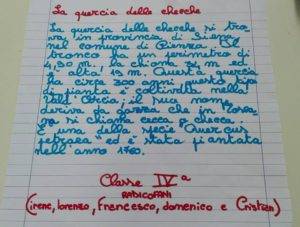 La quercia delle checche
La quercia delle checche si tro-
va in provincia di Siena
nel comune di Pienza. Il
tronco ha un perimetro di
4,30 m, la chioma 34 m ed
è alta 19 m. Questa quercia
ha circa 300 anni, questo tipo
di pianta è coltivata nella
Val d'Orcia, il suo nome
deriva da gazza che in Tosca-
na si chiama cecca o checca.
È una della specie "Quercus
petraea" ed è stata piantata
nell'anno 1700.
Classe IVª
RADICOFANI
(irene, lorenzo, Francesco, domenico e Cristian)